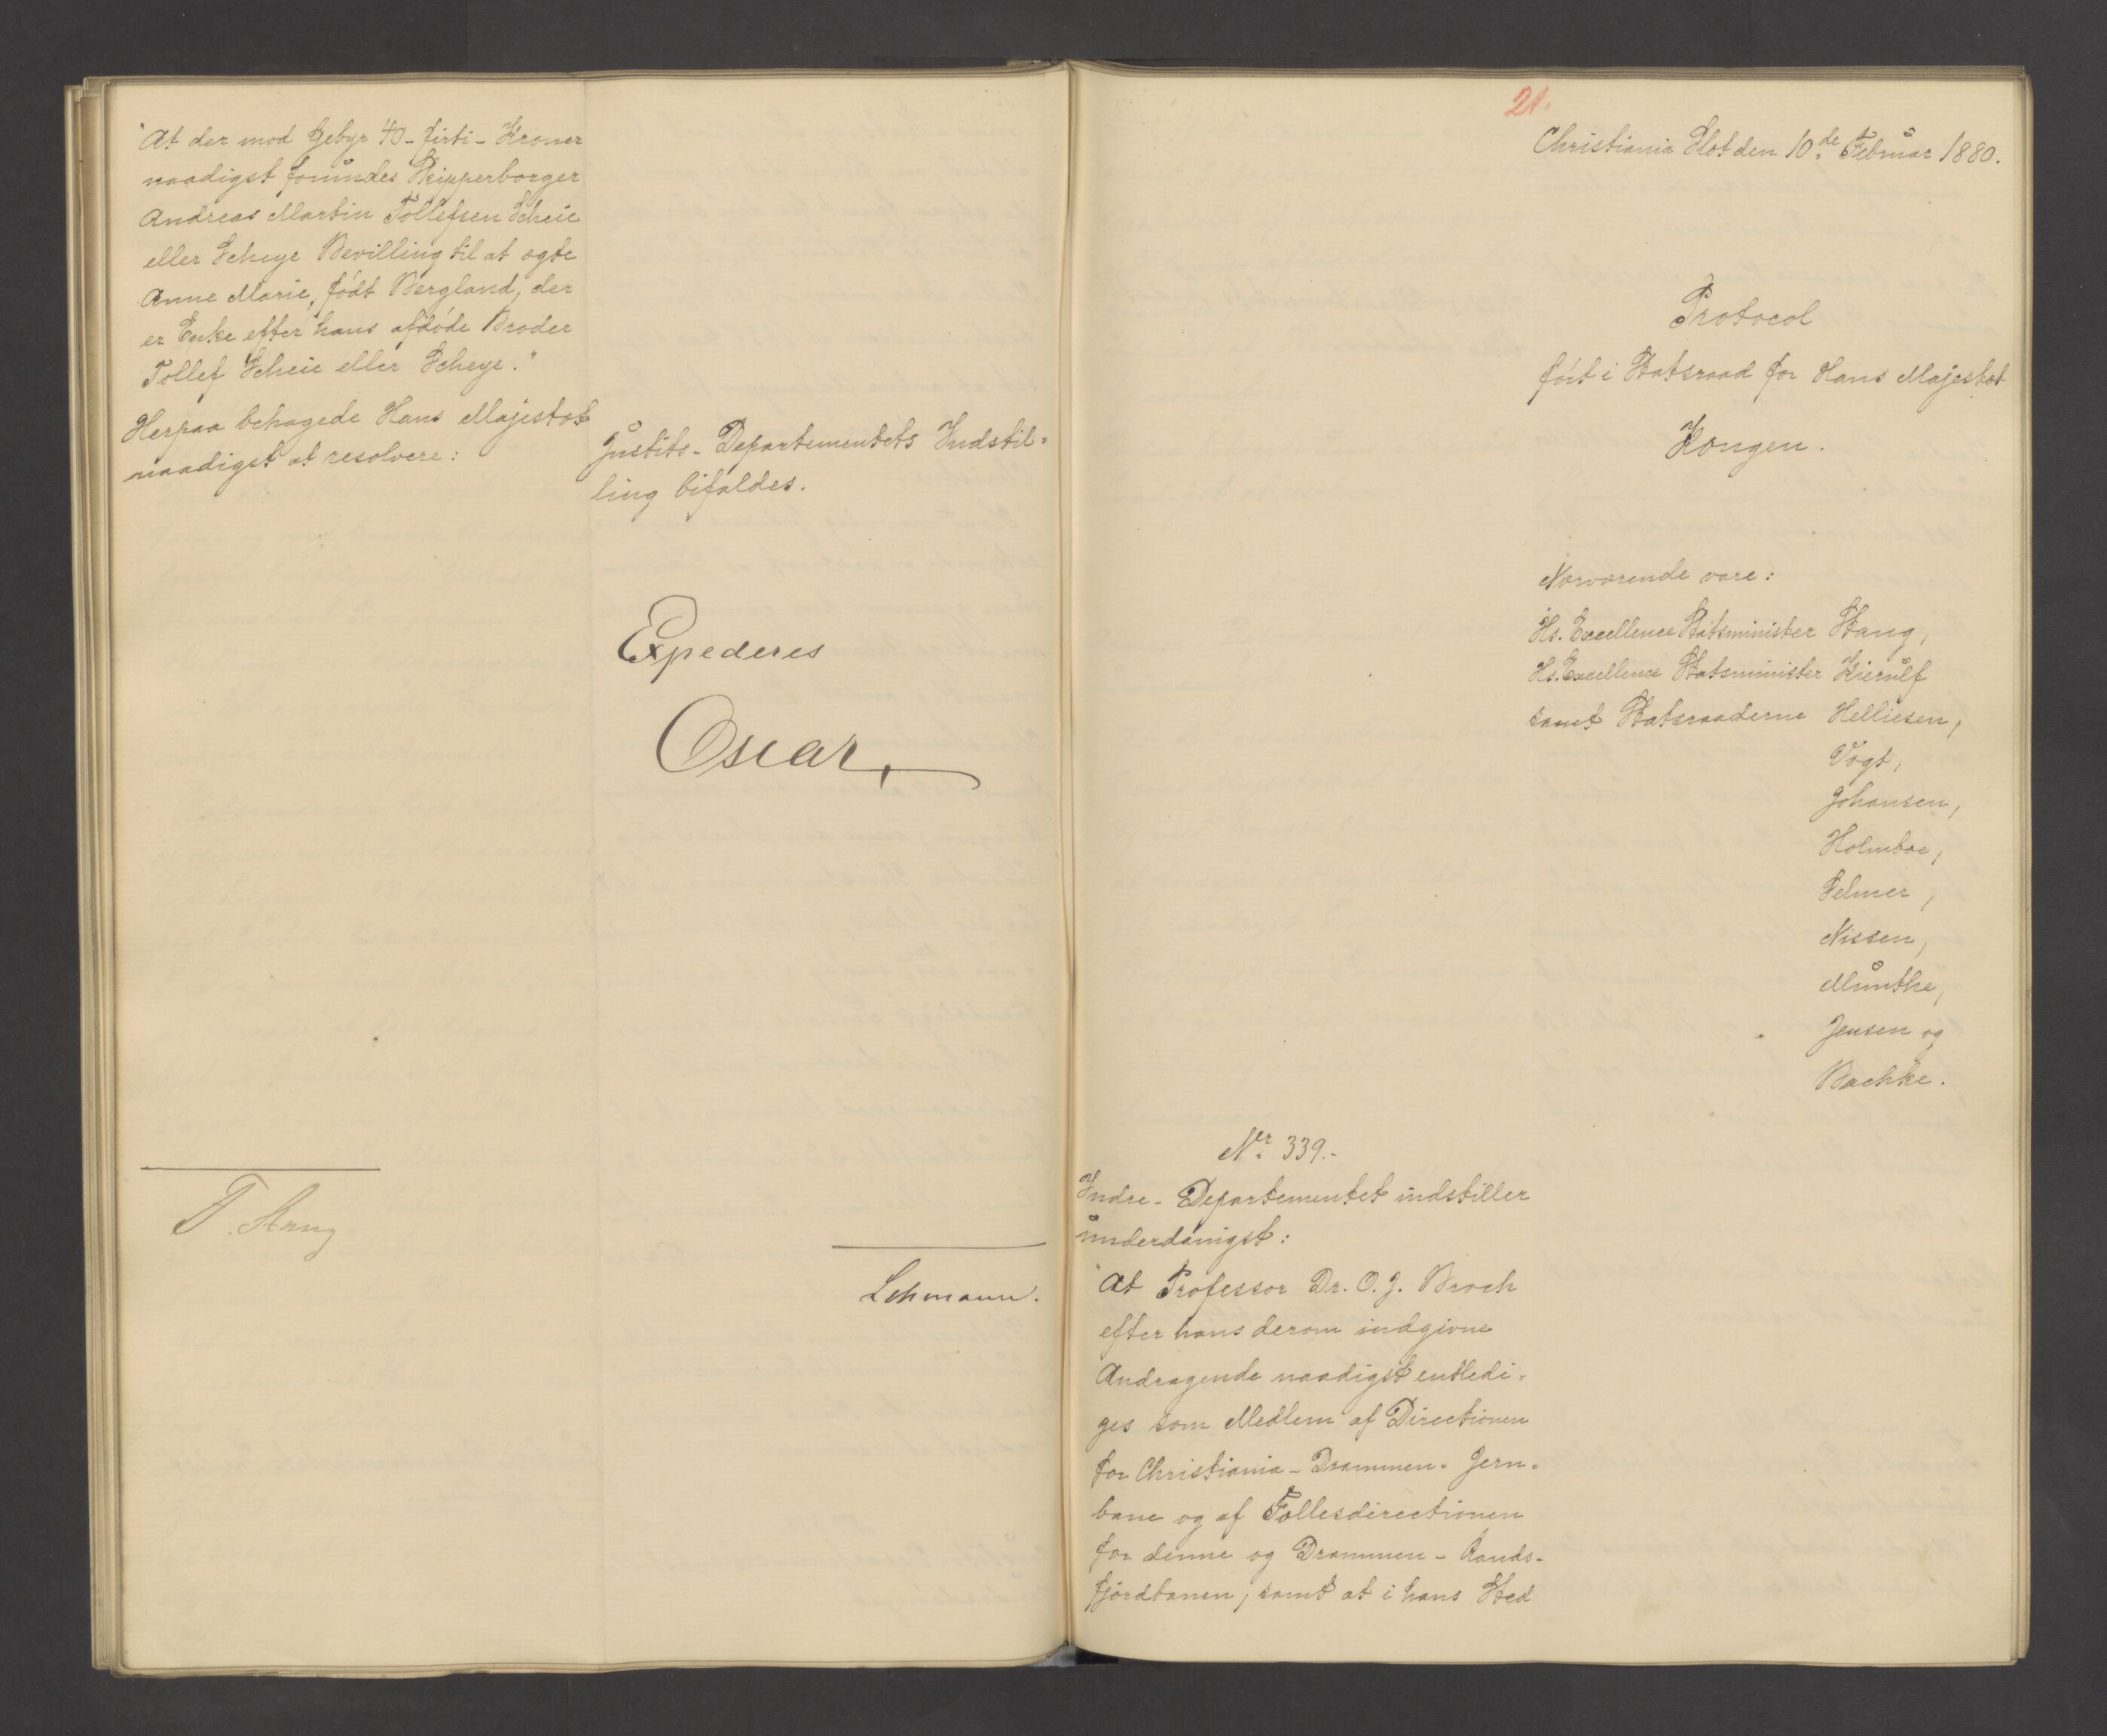 "At der mod Gebyr 40 - firti - Kroner
naadigst forundes Skipperborger
Andreas Martin Tollefsen Scheie
eller Scheye Bevilling til at ægte
Anne Marie, født Bergland, der
er Enke efter hans afdøde Broder
Tollef Scheie eller Scheye."
Herpaa behagede Hans Majestæt
naadigst at resolvere:
Justits-Departementets Indstil=
ling bifaldes.
Expederes
Oscar
F. Stang
Lehmann.
21.
Christiania Slot den 10de Februar 1880.
Protocol
ført i Statsraad for Hans Majestæt
Kongen.
Nærværende vare:
Hs. Excellence Statsminister Stang,
Hs. Excellence Statsminister Kierulf
samt Statsraaderne Helliesen,
Vogt,
Johansen,
Holmboe,
Selmer,
Nissen,
Munthe,
Jensen og
Bachke.
Nr. 339.-
Indre-Departementet indstiller
underdanigst:
"At Professor Dr. O. J. Broch
efter hans derom indgivne
Andragende naadigst entledi=
ges som Medlem af Directionen
for Christiania-Drammen-Jern=
bane og af Fællesdirectionen
for denne og Drammen-Rands-
fjordbanen, samt at i hans Sted